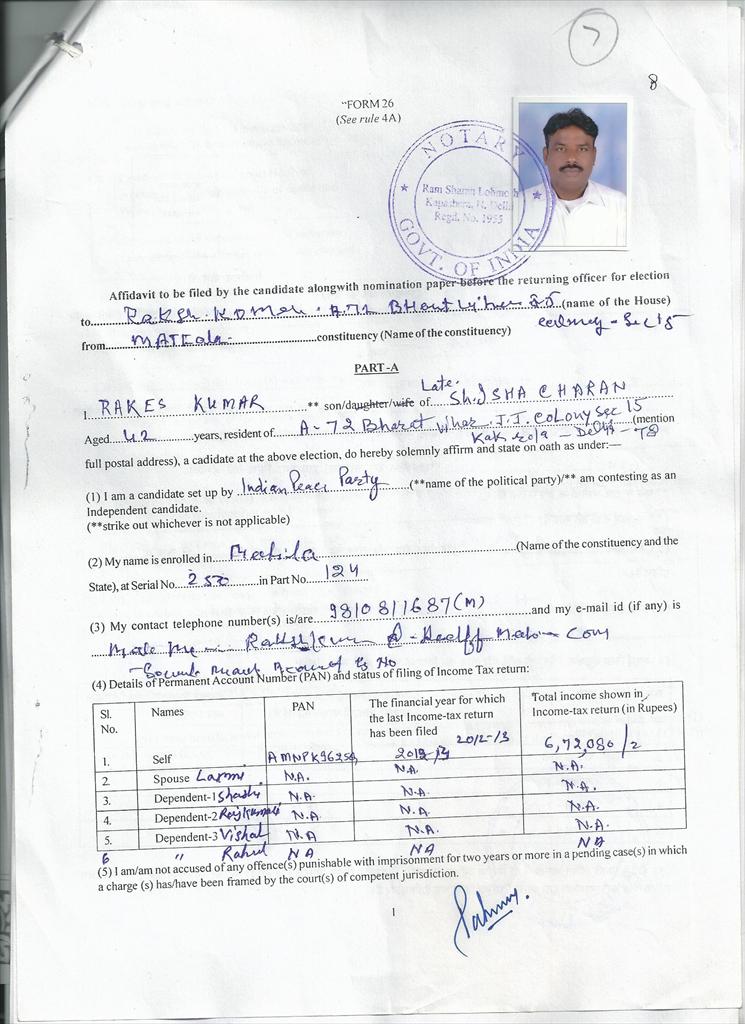 7
8
"FORM 26
(See rule 4A)
NOTARY
Ram Sharan
Kapashera, N. Delhi
Regd. No. 1955
GOVT. OF INDIA
Affidavit to be filed by the candidate alongwith nomination paper before the returning officer for election
to (name of the House)
from MATIala constituency (Name of the constituency)
PART -A
Late.
1. RAKES KUMAR ** son/daughter/wife of Sh. ISHA CHARAN
Aged 42 years, resident of A-72 Bharat Vihar J.J. Colony Sec 15 (mention
Kakrola - Delhi - 78
full postal address), a cadidate at the above election, do hereby solemnly affirm and state on oath as under:—
(1) I am a candidate set up by Indian Peace Party (**name of the political party)/** am contesting as an
Independent candidate.
(**strike out whichever is not applicable)
(2) My name is enrolled in (Name of the constituency and the
State), at Serial No. in Part No. 124
(3) My contact telephone number(s) is/are 9810811687(M) and my e-mail id (if any) is
(4) Details of Permanent Account Number (PAN) and status of filing of Income Tax return:
Sl. No. Names PAN The financial year for which the last Income-tax return has been filed Total income shown in Income-tax return (in Rupees)
1. Self 2012-13 6,72,080/2
2. Spouse Laxmi N.A. N.A. N.A.
3. Dependent-1 Shashi N.A. N.A. N.A.
4. Dependent-2 N.A. N.A. N.A.
5. Dependent-3 Vishal N.A N.A. N.A.
6 " Rahul NA NA NA
(5) I am/am not accused of any offence(s) punishable with imprisonment for two years or more in a pending case(s) in which
a charge (s) has/have been framed by the court(s) of competent jurisdiction.
1